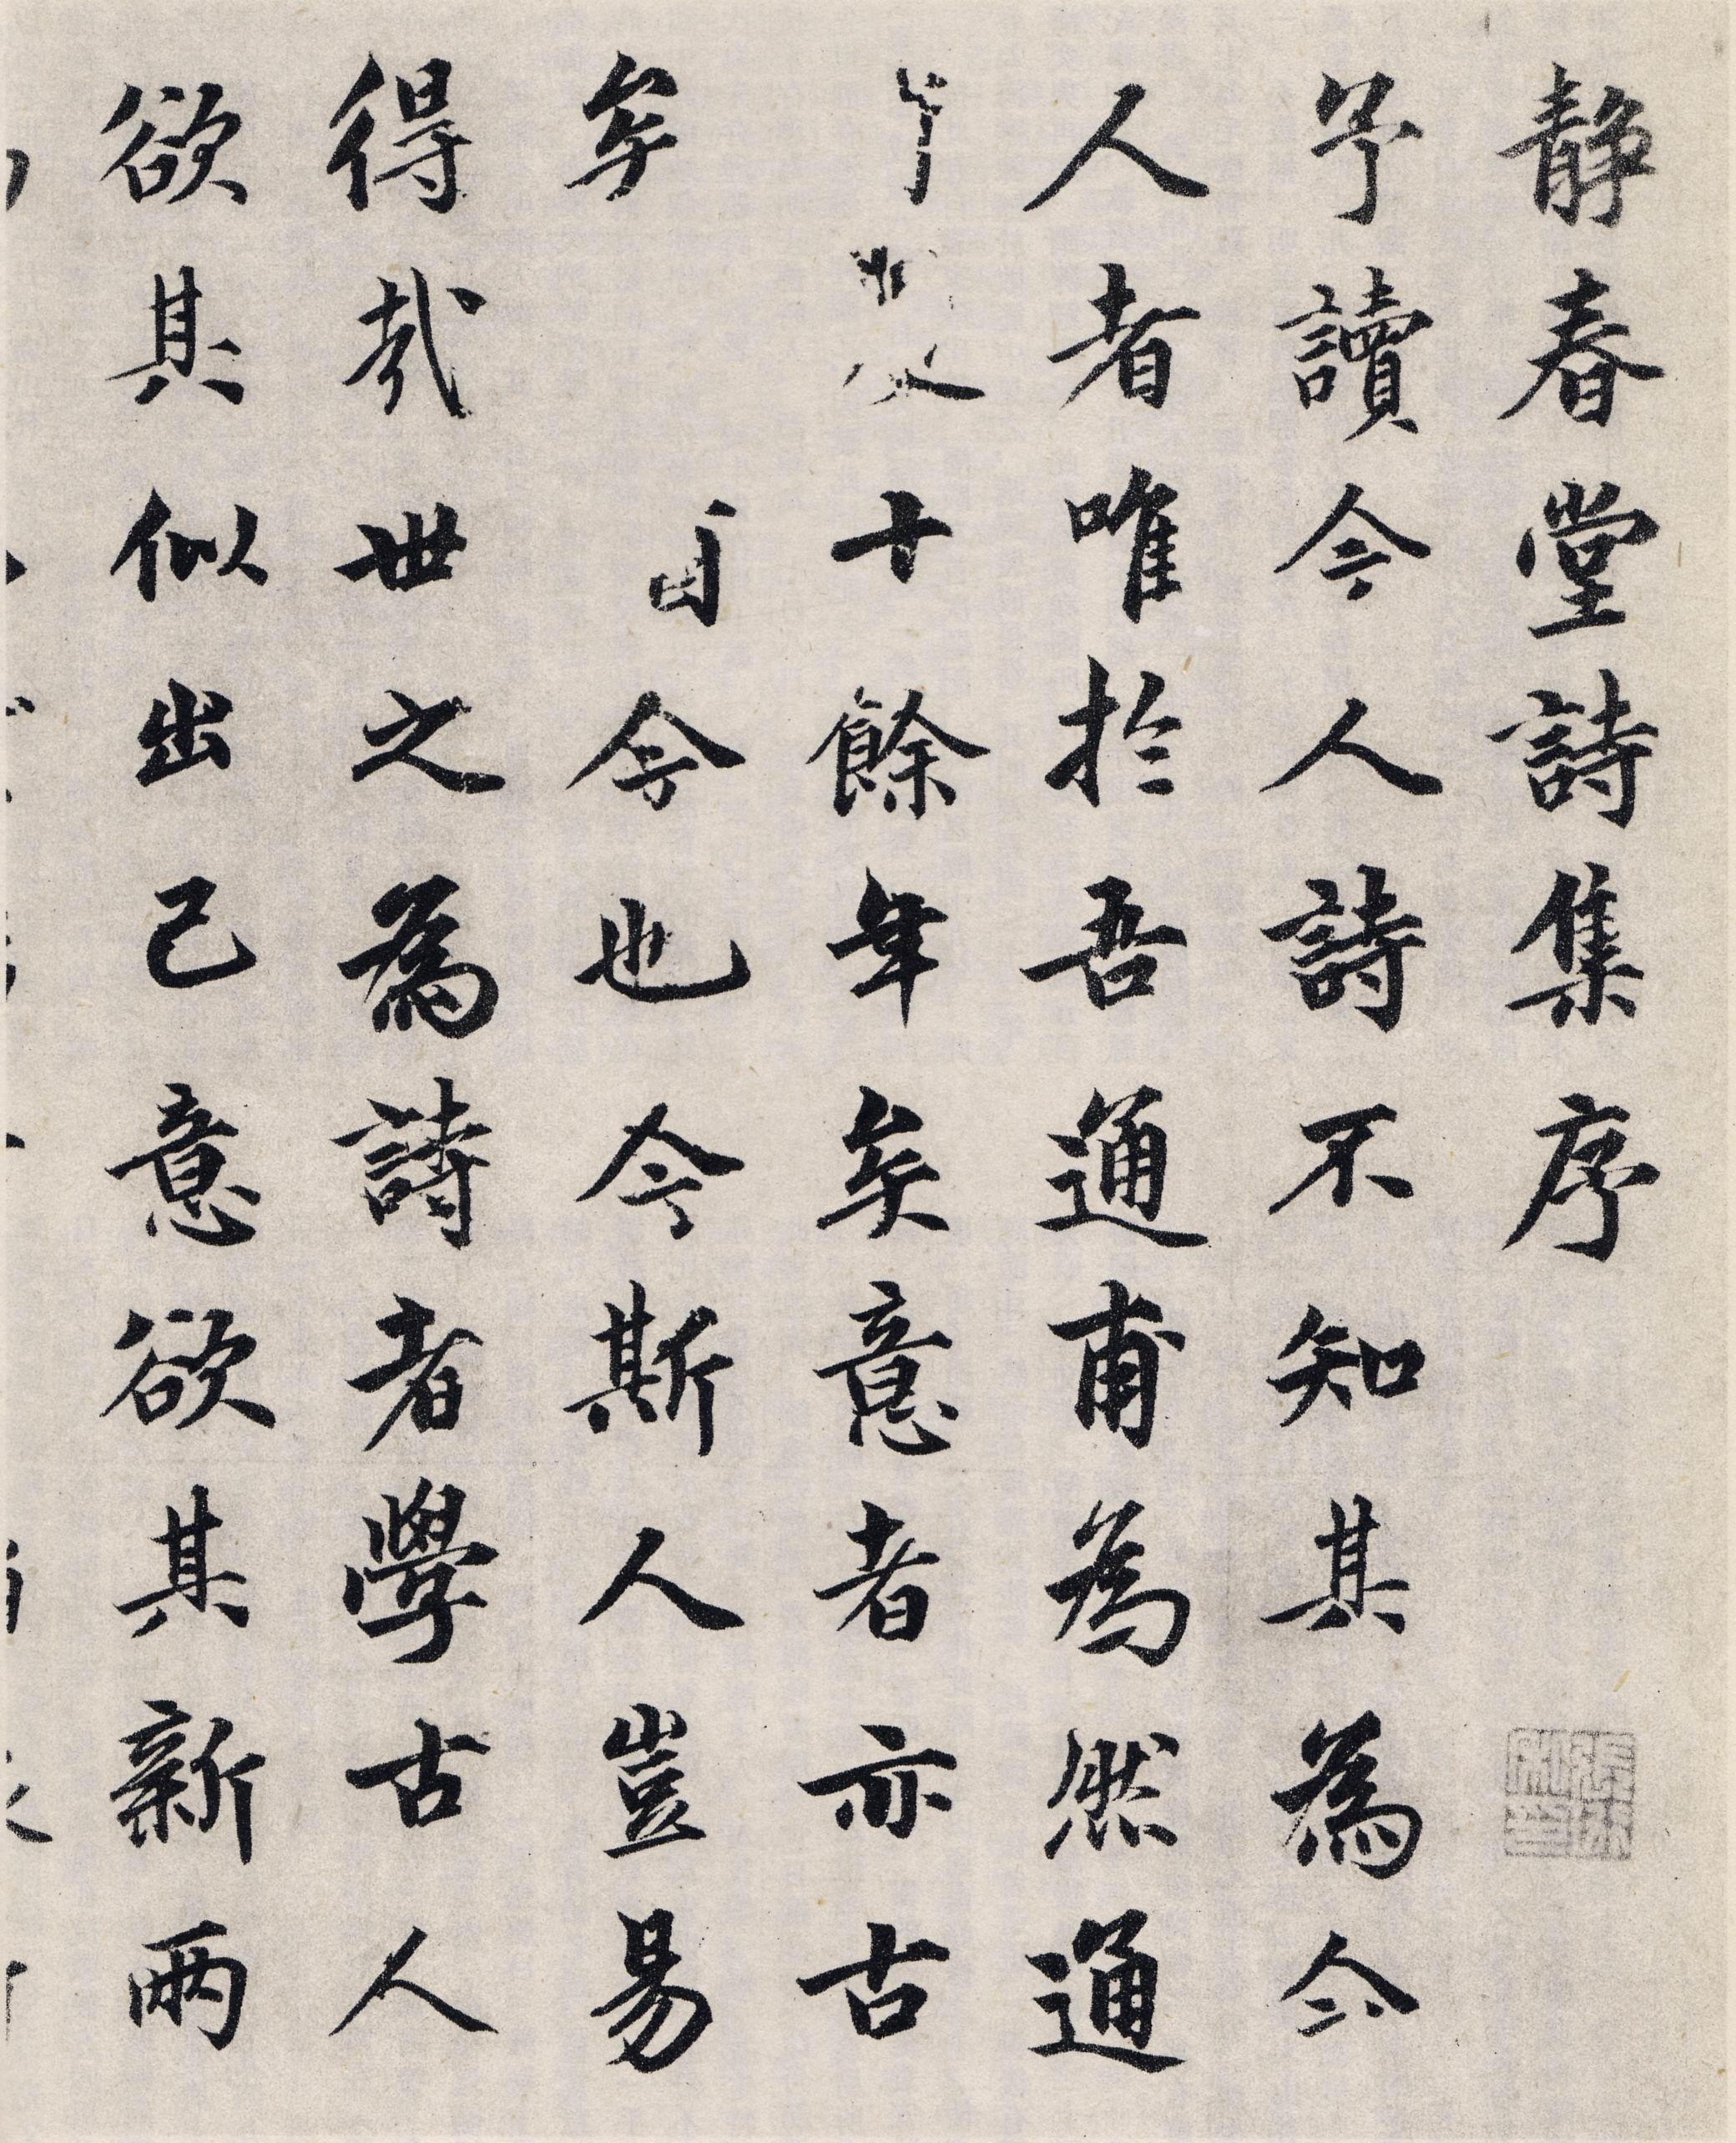 静春堂詩集序
予讀今人詩不知其為今
人者唯於吾通甫為然通
十餘年矣意者亦古
牟今也今斯人豈易
得哉世之為詩者學古人
欲其似出己意欲其新兩